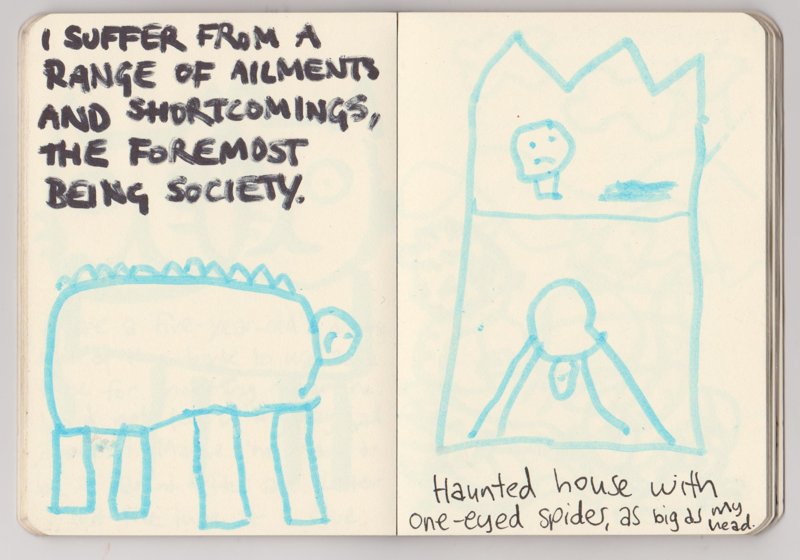 I SUFFER FROM A
RANGE OF AILMENTS
AND SHORTCOMINGS,
THE FOREMOST
BEING SOCIETY.
Haunted house with
one-eyed spider, as big as my head.